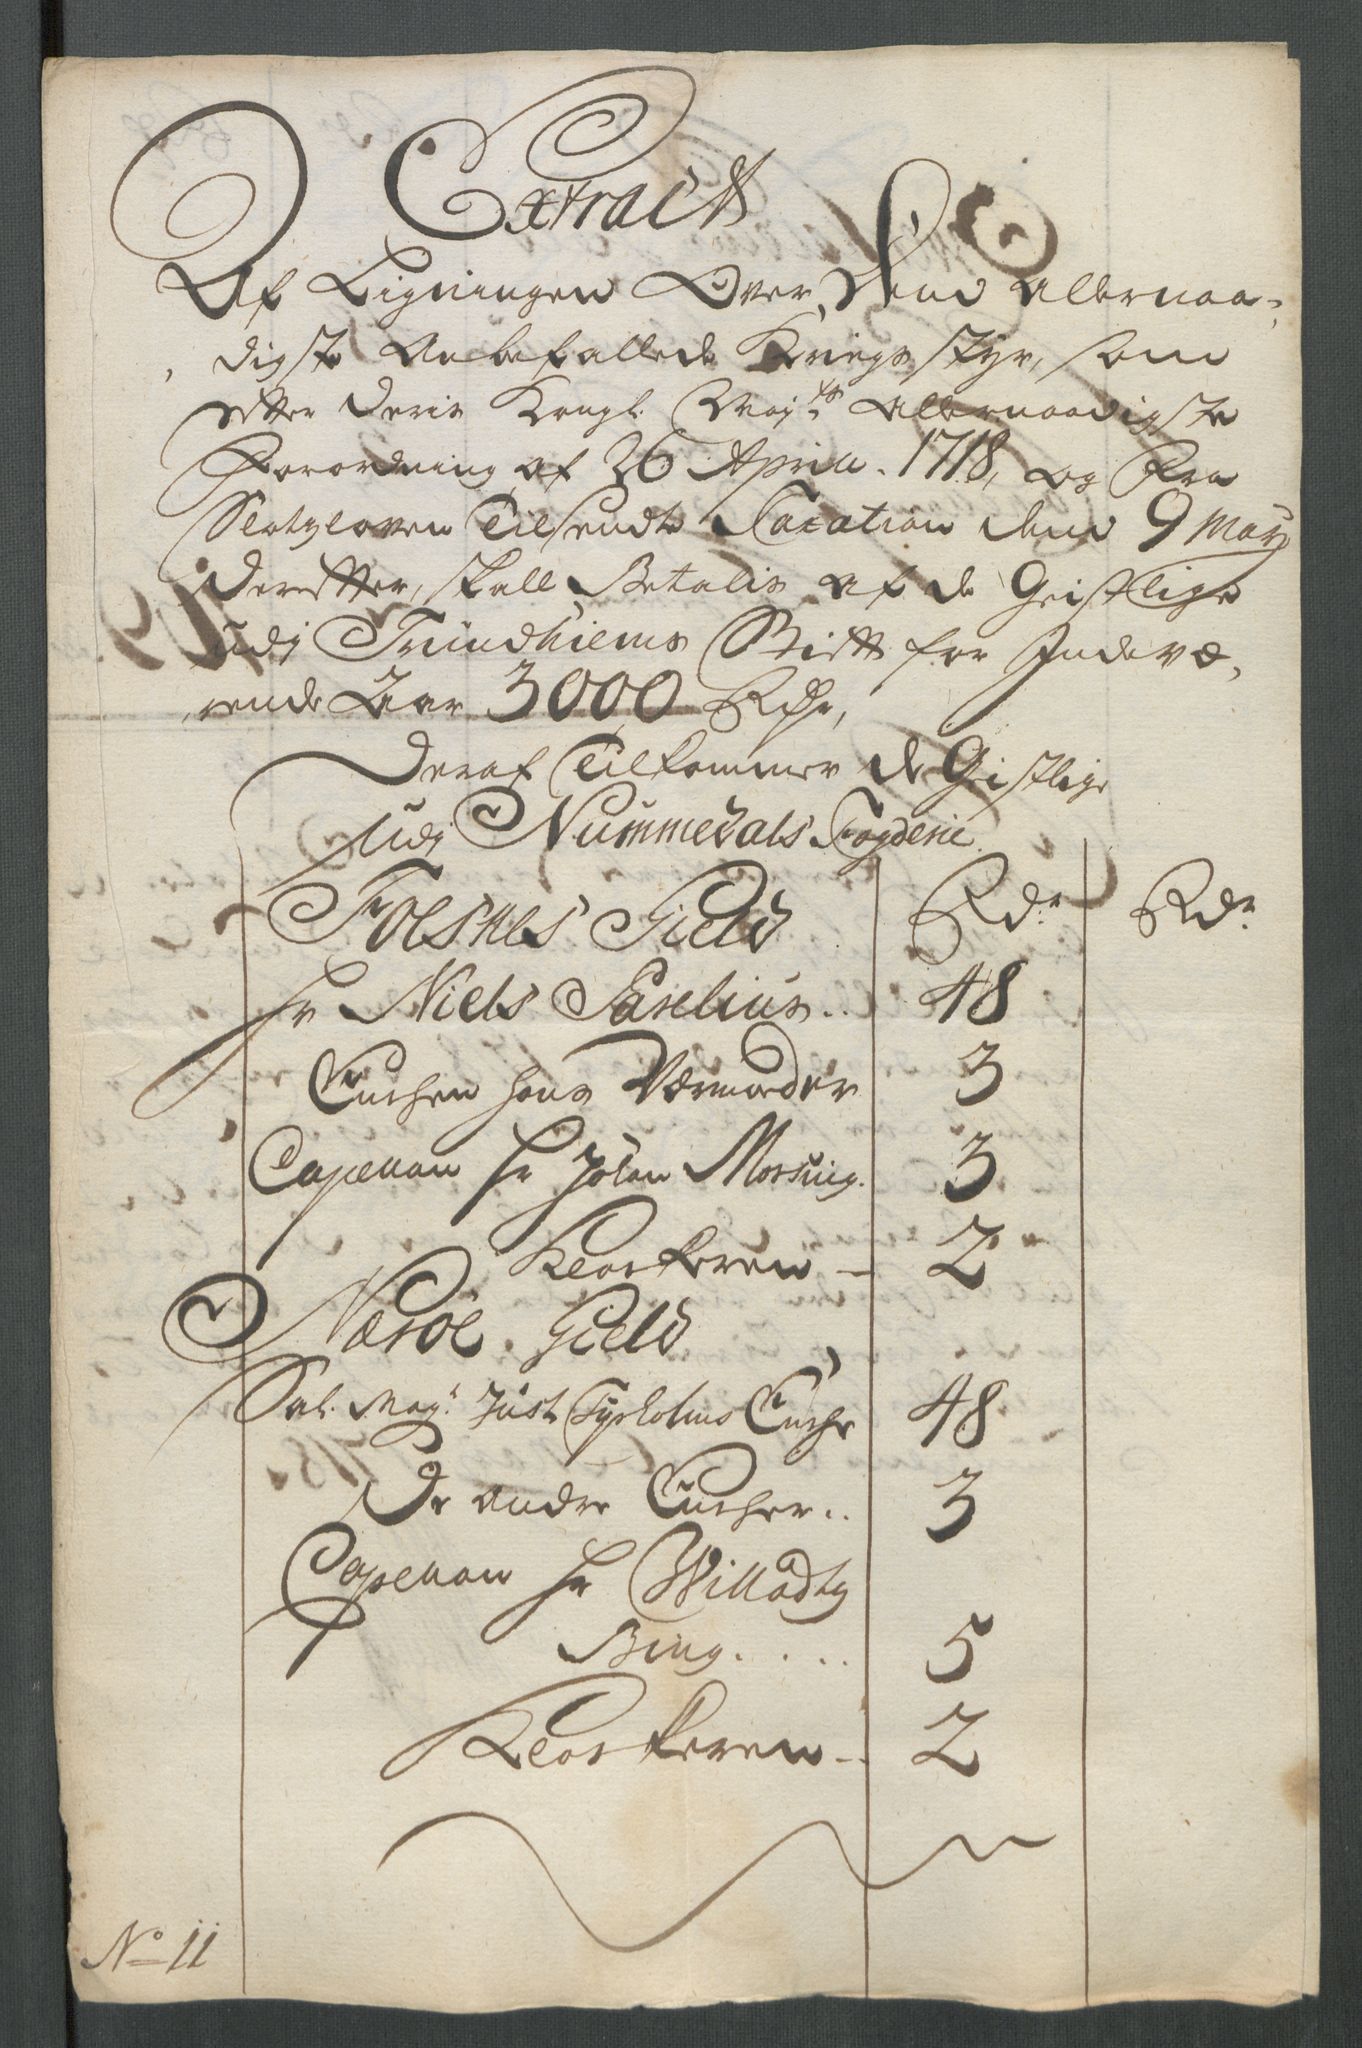 Extract
Af Ligningen Over Dend Allernaa-
digste Anbefallede Kriigs Styr, som
effter Deris Kongl. Mayts Allernaadigste
Forordning af 26 April. 1718, og fra
Slotzloven Tilsendte Taxation dend 9 May
derefter, skall Betalis af de Geistlige
udj Trundhiems Stift for Indevæ-
rende Aar 3000 Rdr,
Deraf Tilkommer de Geistlige
udj Nummedals Fogderie.
Foesnes Gield Rdr Rdr
Hr Niels Parelius.. 48
Enchen hans Værmoder 3
Capellan Hr Johan Morsing. 3
Klockeren - 2
Nærøe Gield
Sal. Mag. Just Tyrholms Enche 48
De andre Encher.. 3
Capellan Hr Willadtz
Bing.... 5
Klockeren - 2
No 11